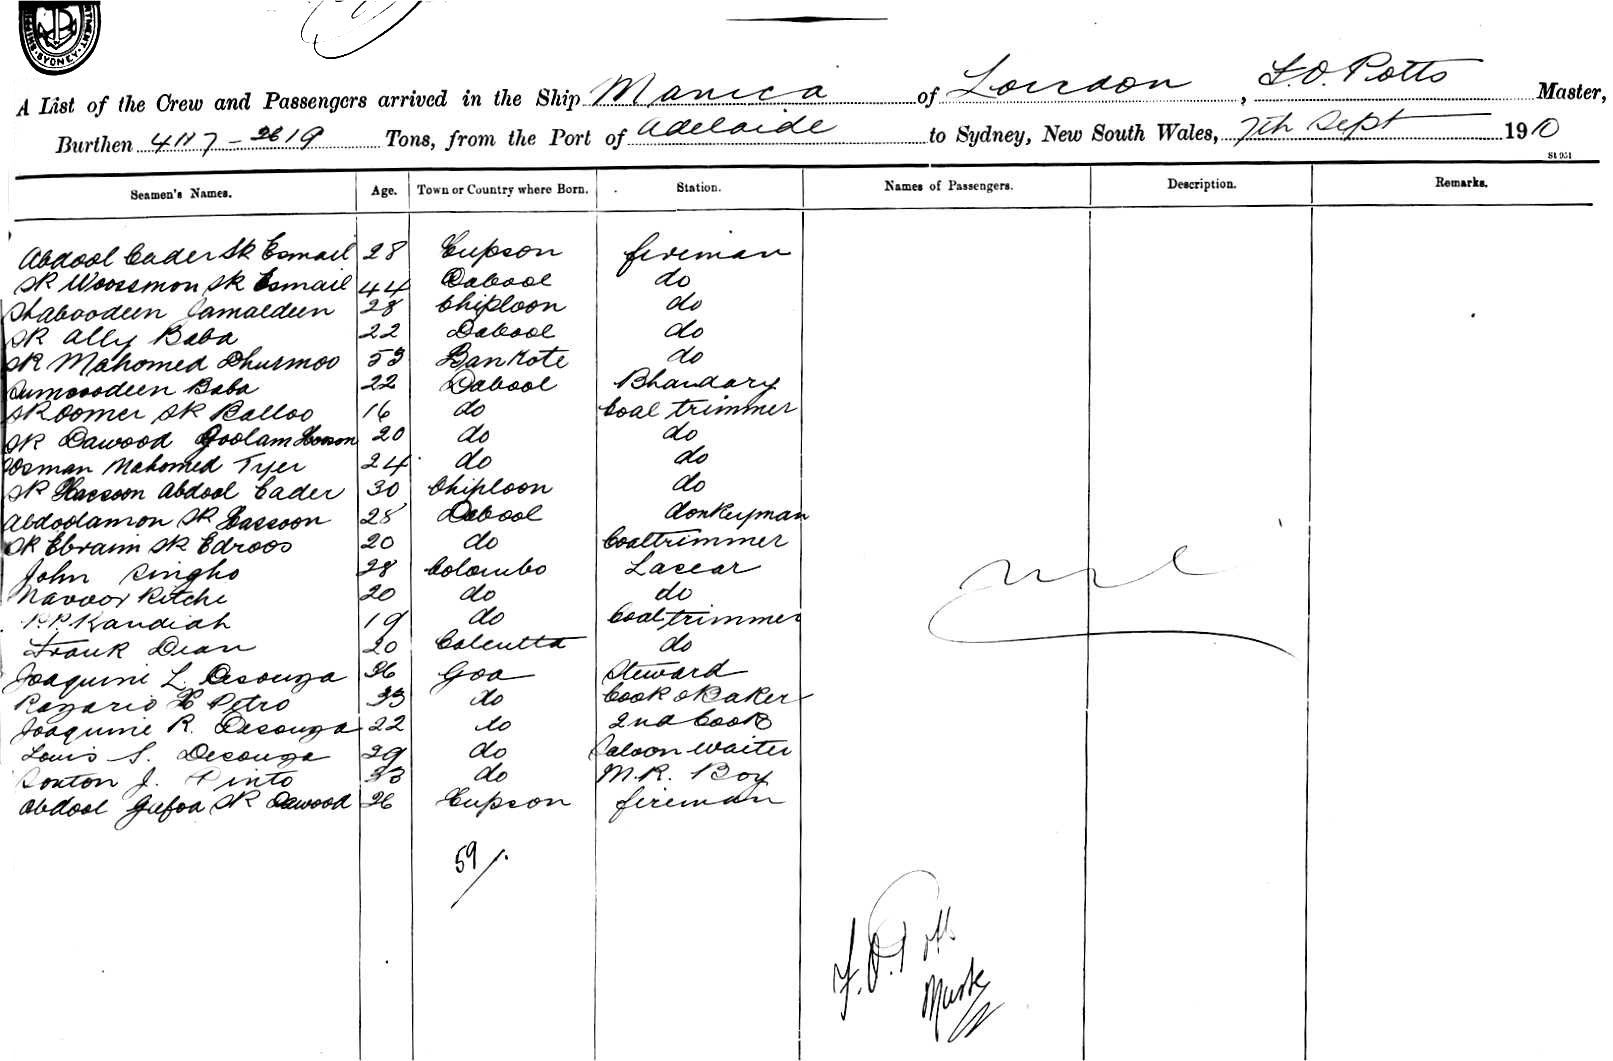 SYDNEY
A List of the Crew and Passengers arrived in the Ship Manica of London, F.O. Potts Master,
Burthen 4117 - 2619 Tons, from the Port of Adelaide to Sydney, New South Wales, 7th Sept 1910
St 951
Seamen's Names. Age. Town or Country where Born. Station. Names of Passengers. Description. Remarks.
Abdool Cader Sk Esmail 28 Cupson fireman
Sk Woossmon Sk Esmail 44 Dabool do
Shaboodeen Jamaldeen 28 Chiploon do
Sk Ally Baba 22 Dabool do
Sk Mahomed Dhurmoo 53 Bankote do
Baba 22 Dabool Bhandary
Sk Oomer Sk Balloo 16 do Coal trimmer
Sk Dawood Goolam Hooson 20 do do
Osman Mahomed Tyer 24 do do
Sk Hassoon Abdool Cader 30 Chiploon do
Abdoolamon Sk Hassoon 28 Dabool donkeyman
Sk Ebraim Sk Edroos 20 do Coaltrimmer
John Singho 28 Colombo Lascar
Navoor Ketche 20 do do
P.P. Kandiah 19 do Coal trimmer
Frank Dean 20 Calcutta do
Joaquine L. Desouza 36 Goa Steward
Rozario X Petro 33 do Cook & Baker
Joaquine R. Desouza 22 do 2nd Cook
Louis S. Desouza 29 do Saloon Waiter
J. Pinto 33 do M.R. Boy
Abdool Gufoa Sk Dawood 26 Cupson fireman
nil
59/.
F.O. Potts
Master